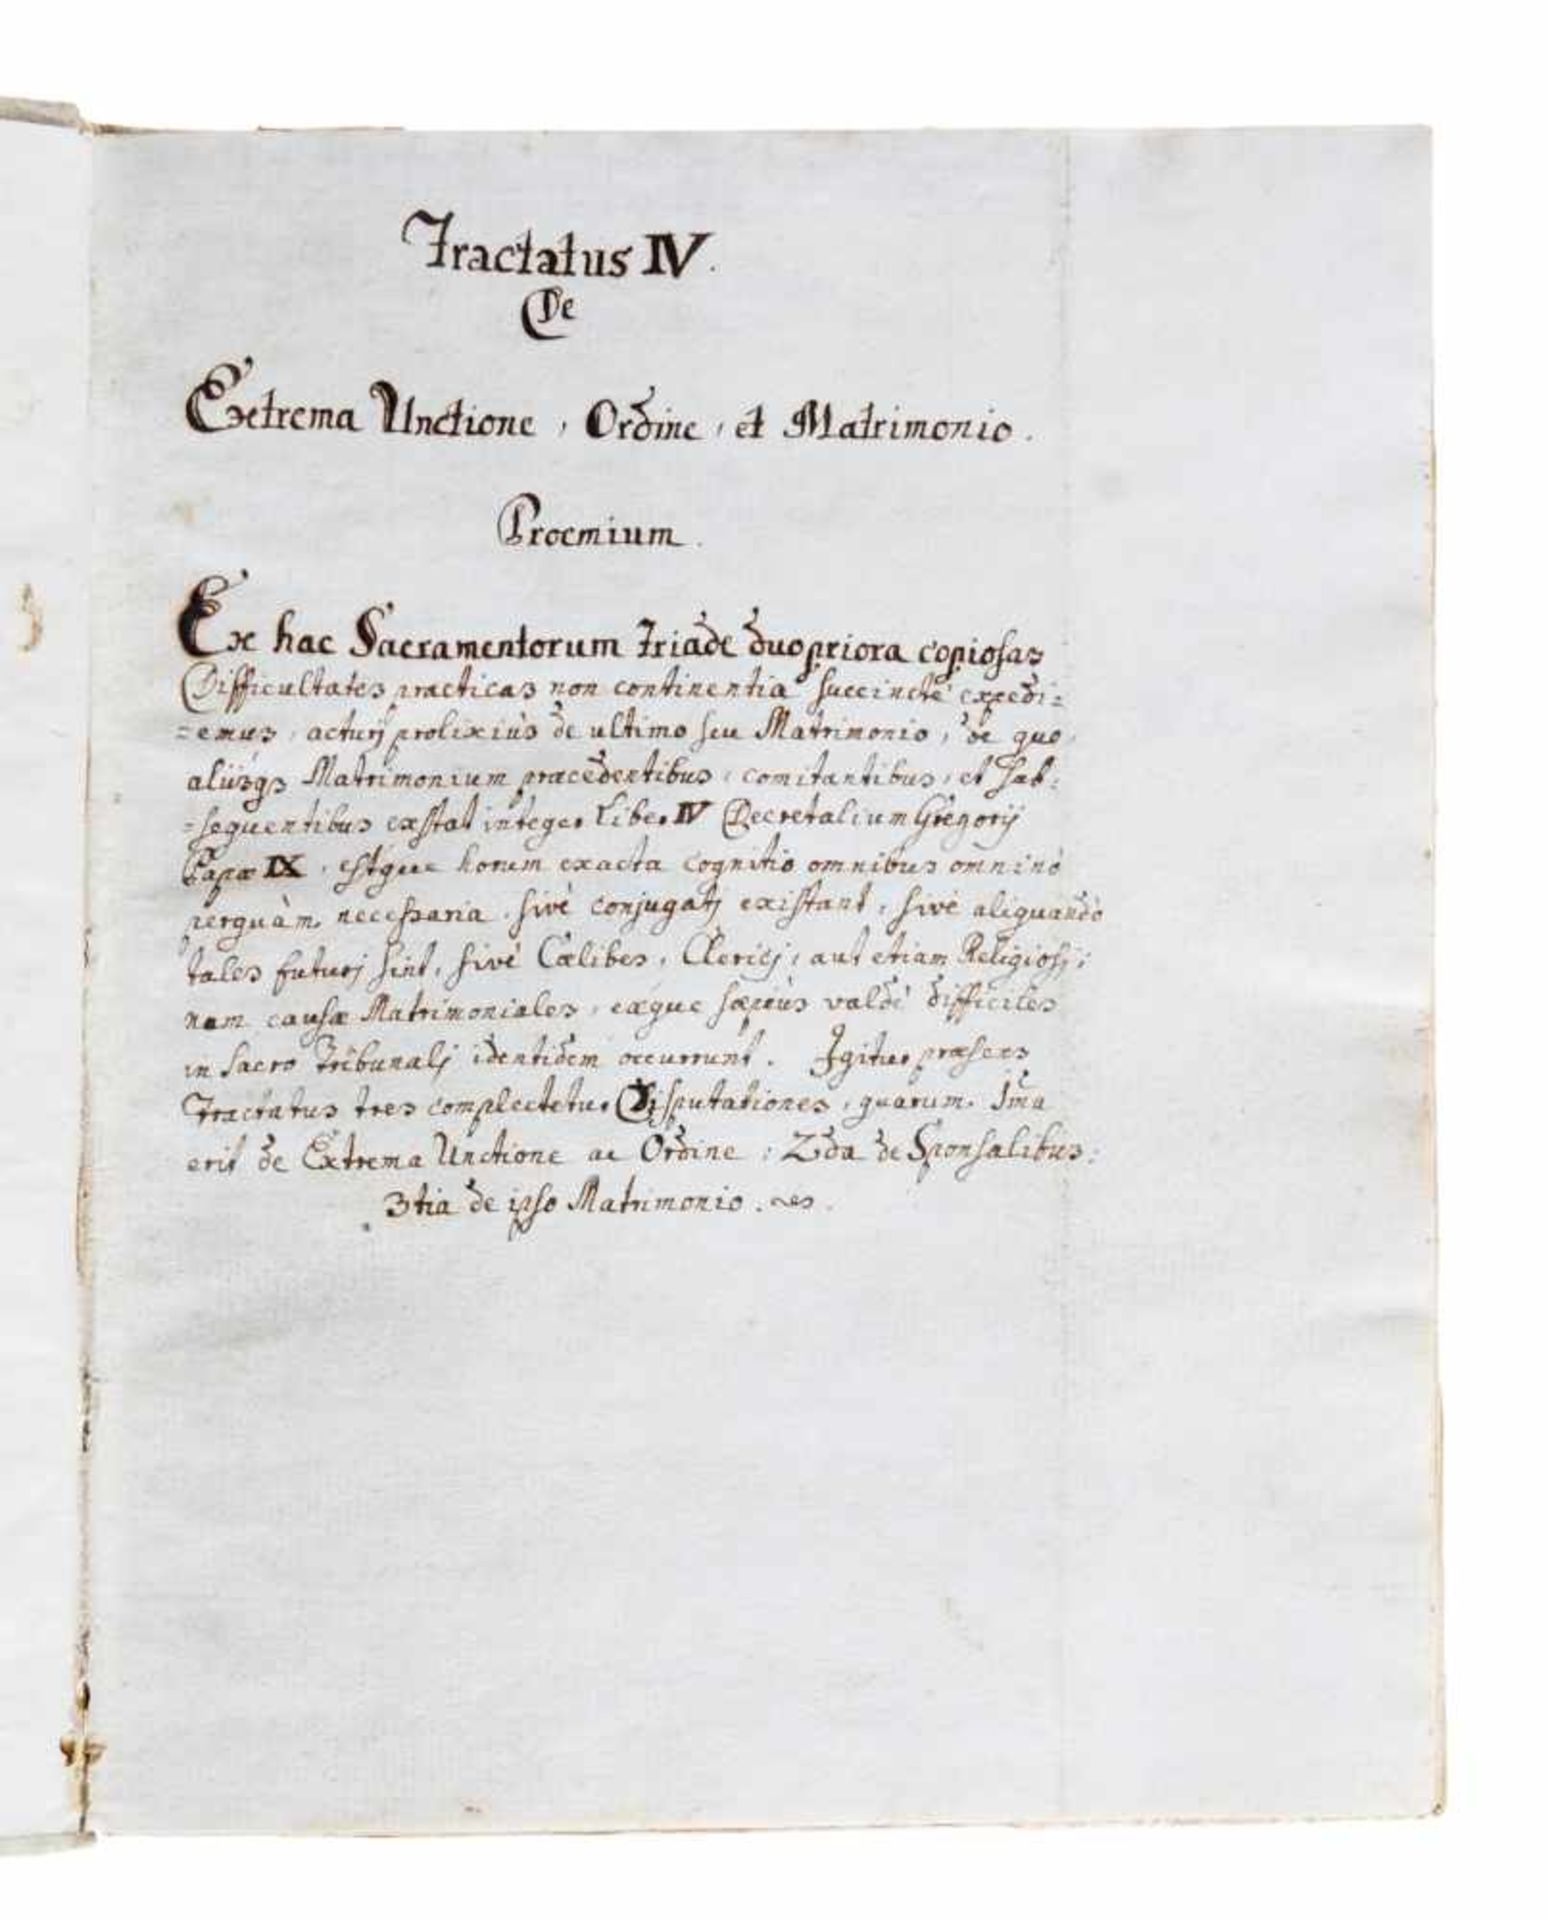 Tractatus IV.
De
Extrema Unctione, Ordine, et Matrimonio.
Proemium.
Ex hac Sacramentorum Triade duo priora copiosas
Difficultates practicas non continentia succinctè expedi=
=emus, acturj prolixiùs de ultimo seu Matrimonio, de quo,
aliisqs Matrimonium praecedentibus, comitantibus, et sub=
=sequentibus exstat integer Liber IV Decretalium Gregorij
Papae IX. estque horum exacta cognitio omnibus omninò
perquàm necessaria, sivè conjugatj existant, sivè aliquandò
tales futurj sint, sivè Caelibes, Clericj, aut etiam Religiosj;
nam causae Matrimoniales, eaeque saepiùs valdè difficiles
in sacro Tribunalj identidem occurrunt. Igitur praesens
Tractatus tres complectetur Disputationes, quarum 1ma
erit de Extrema Unctione ac Ordine: 2da de Sponsalibus:
3tia de ipso Matrimonio.